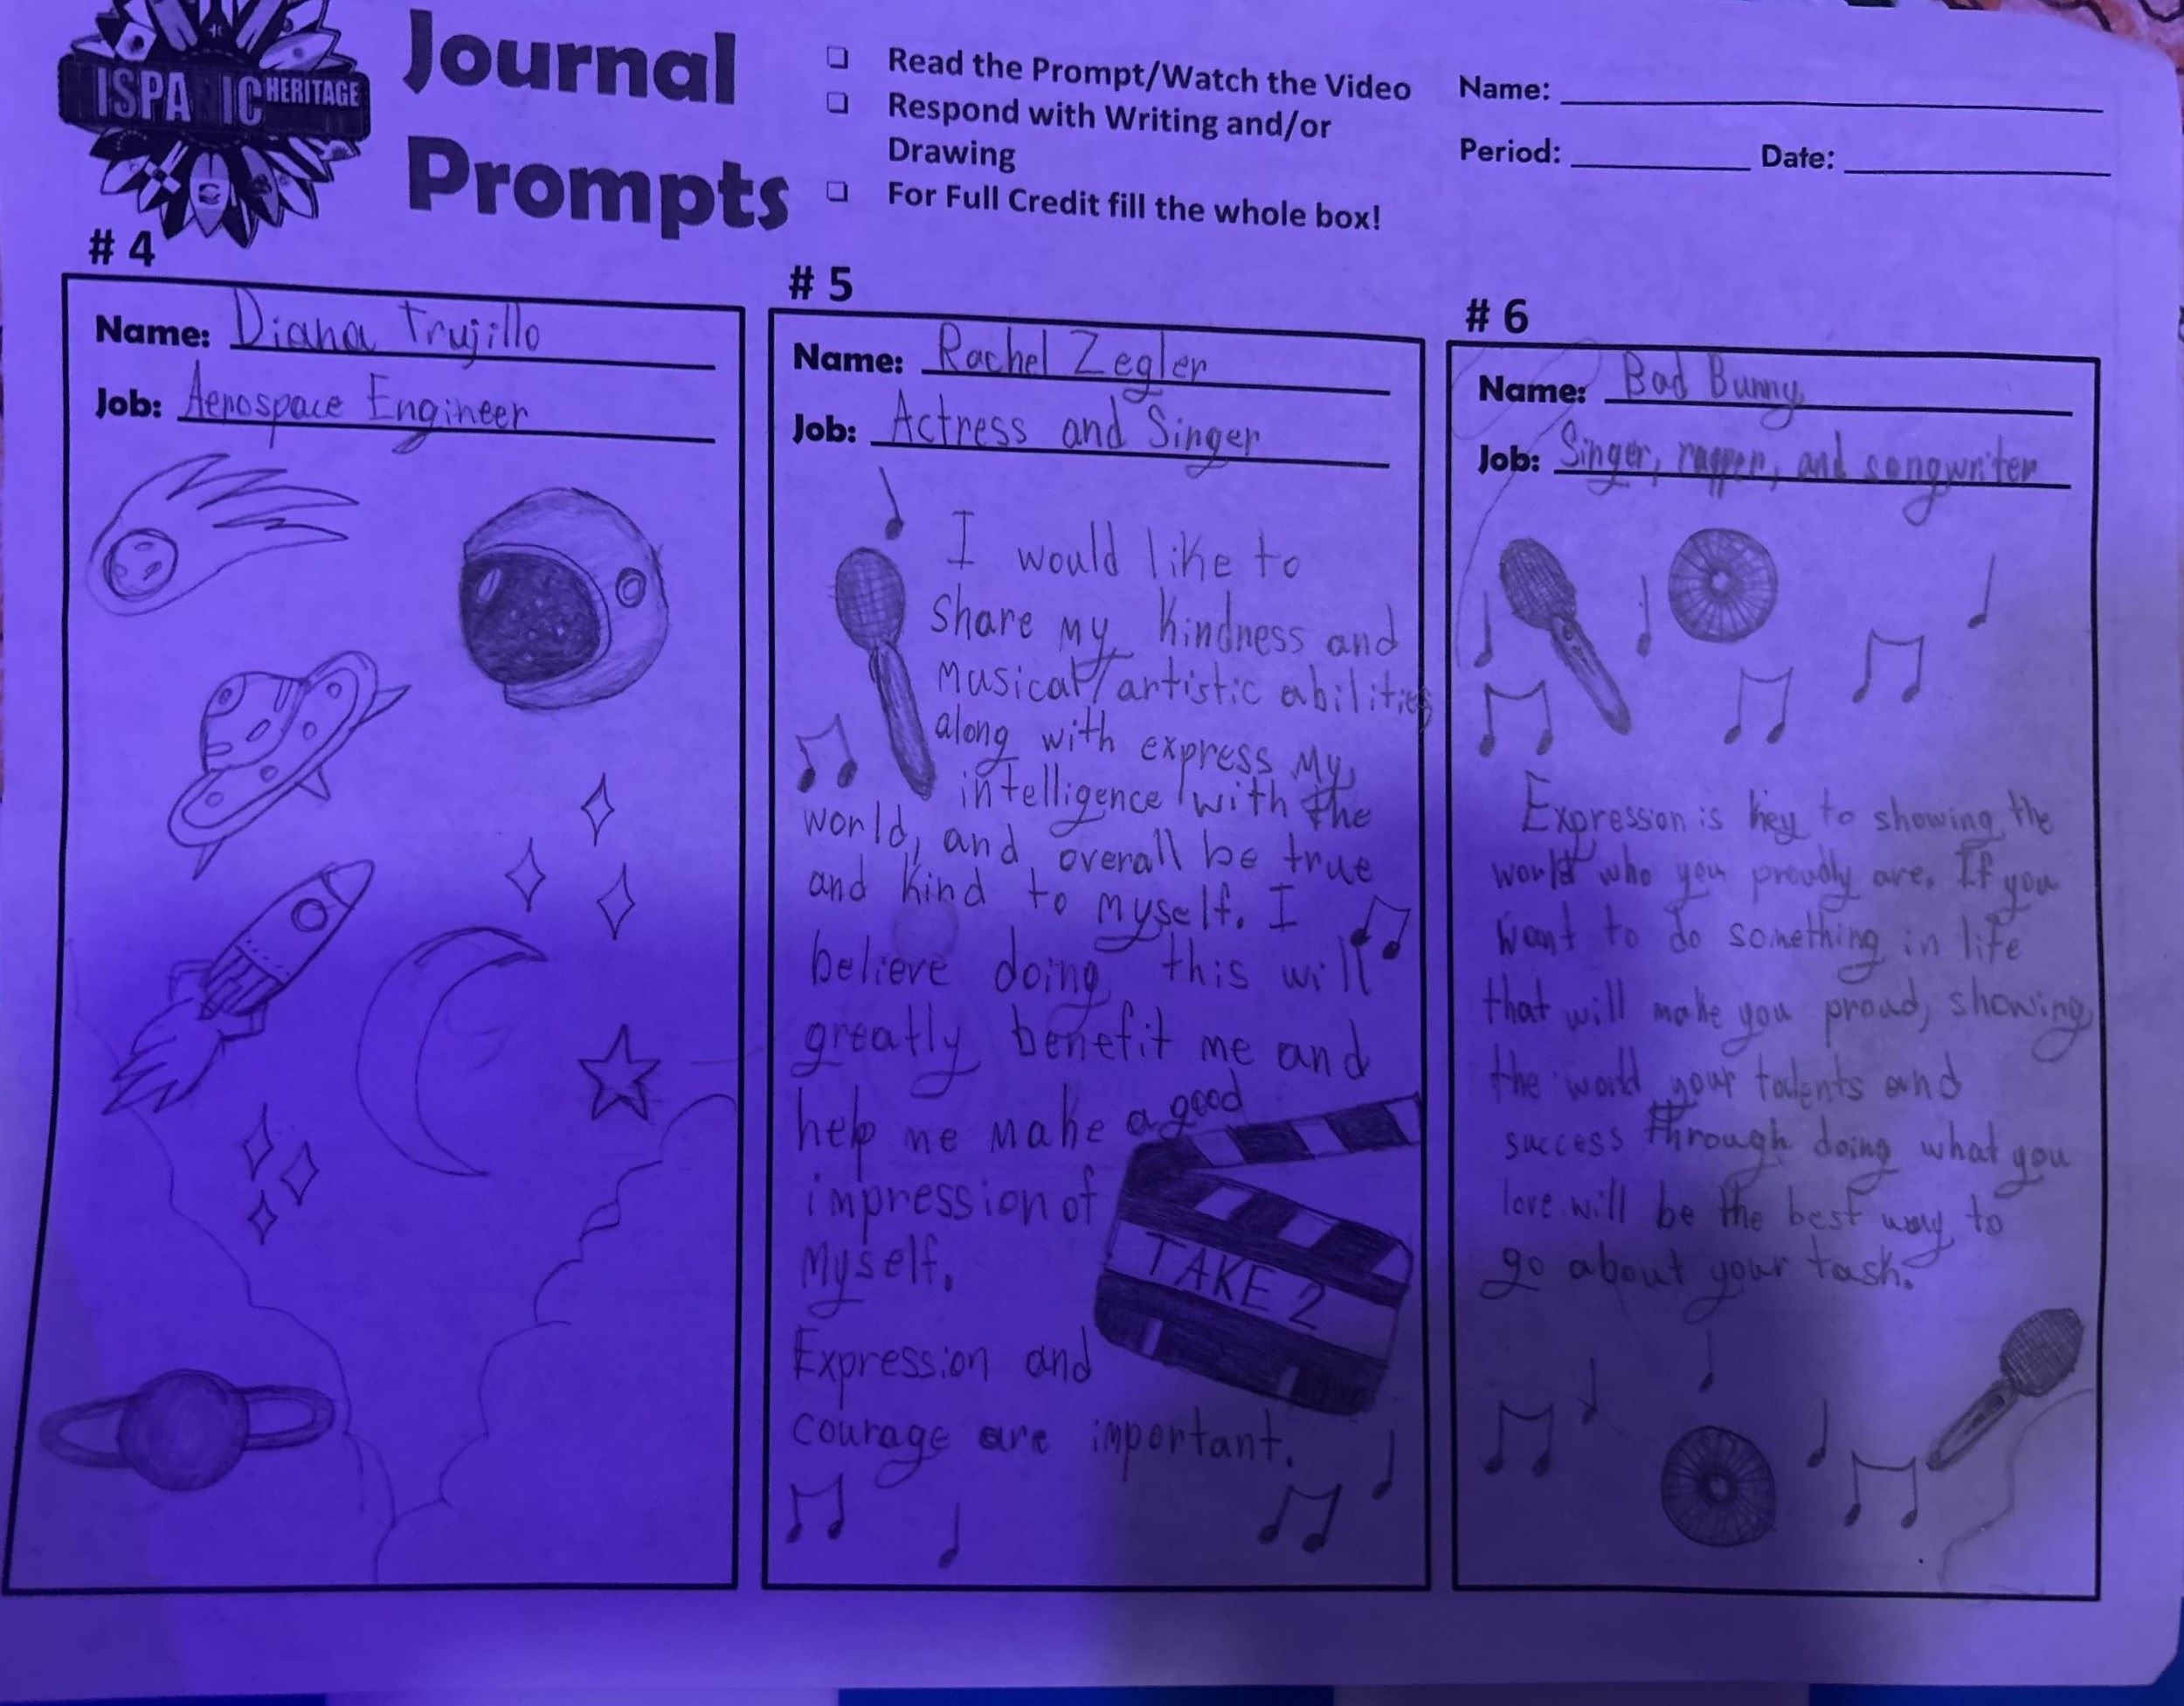 ISPA IC HERITAGE
Journal
Prompts
❏ Read the Prompt/Watch the Video
❏ Respond with Writing and/or
Drawing
❏ For Full Credit fill the whole box!
Name:
Period: Date:
# 4
Name: Diana Trujillo
Job: Aerospace Engineer
# 5
Name: Rachel Zegler
Job: Actress and Singer
I would like to
share my kindness and
musical/artistic abilities
along with express my
intelligence with the
world, and overall be true
and kind to myself. I
believe doing this will
greatly benefit me and
help me make a good
impression of
myself.
TAKE 2
Expression and
courage are important.
# 6
Name: Bad Bunny
Job: Singer, rapper, and songwriter
Expression is key to showing the
world who you proudly are. If you
want to do something in life
that will make you proud, showing
the world your talents and
success through doing what you
love will be the best way to
go about your task.